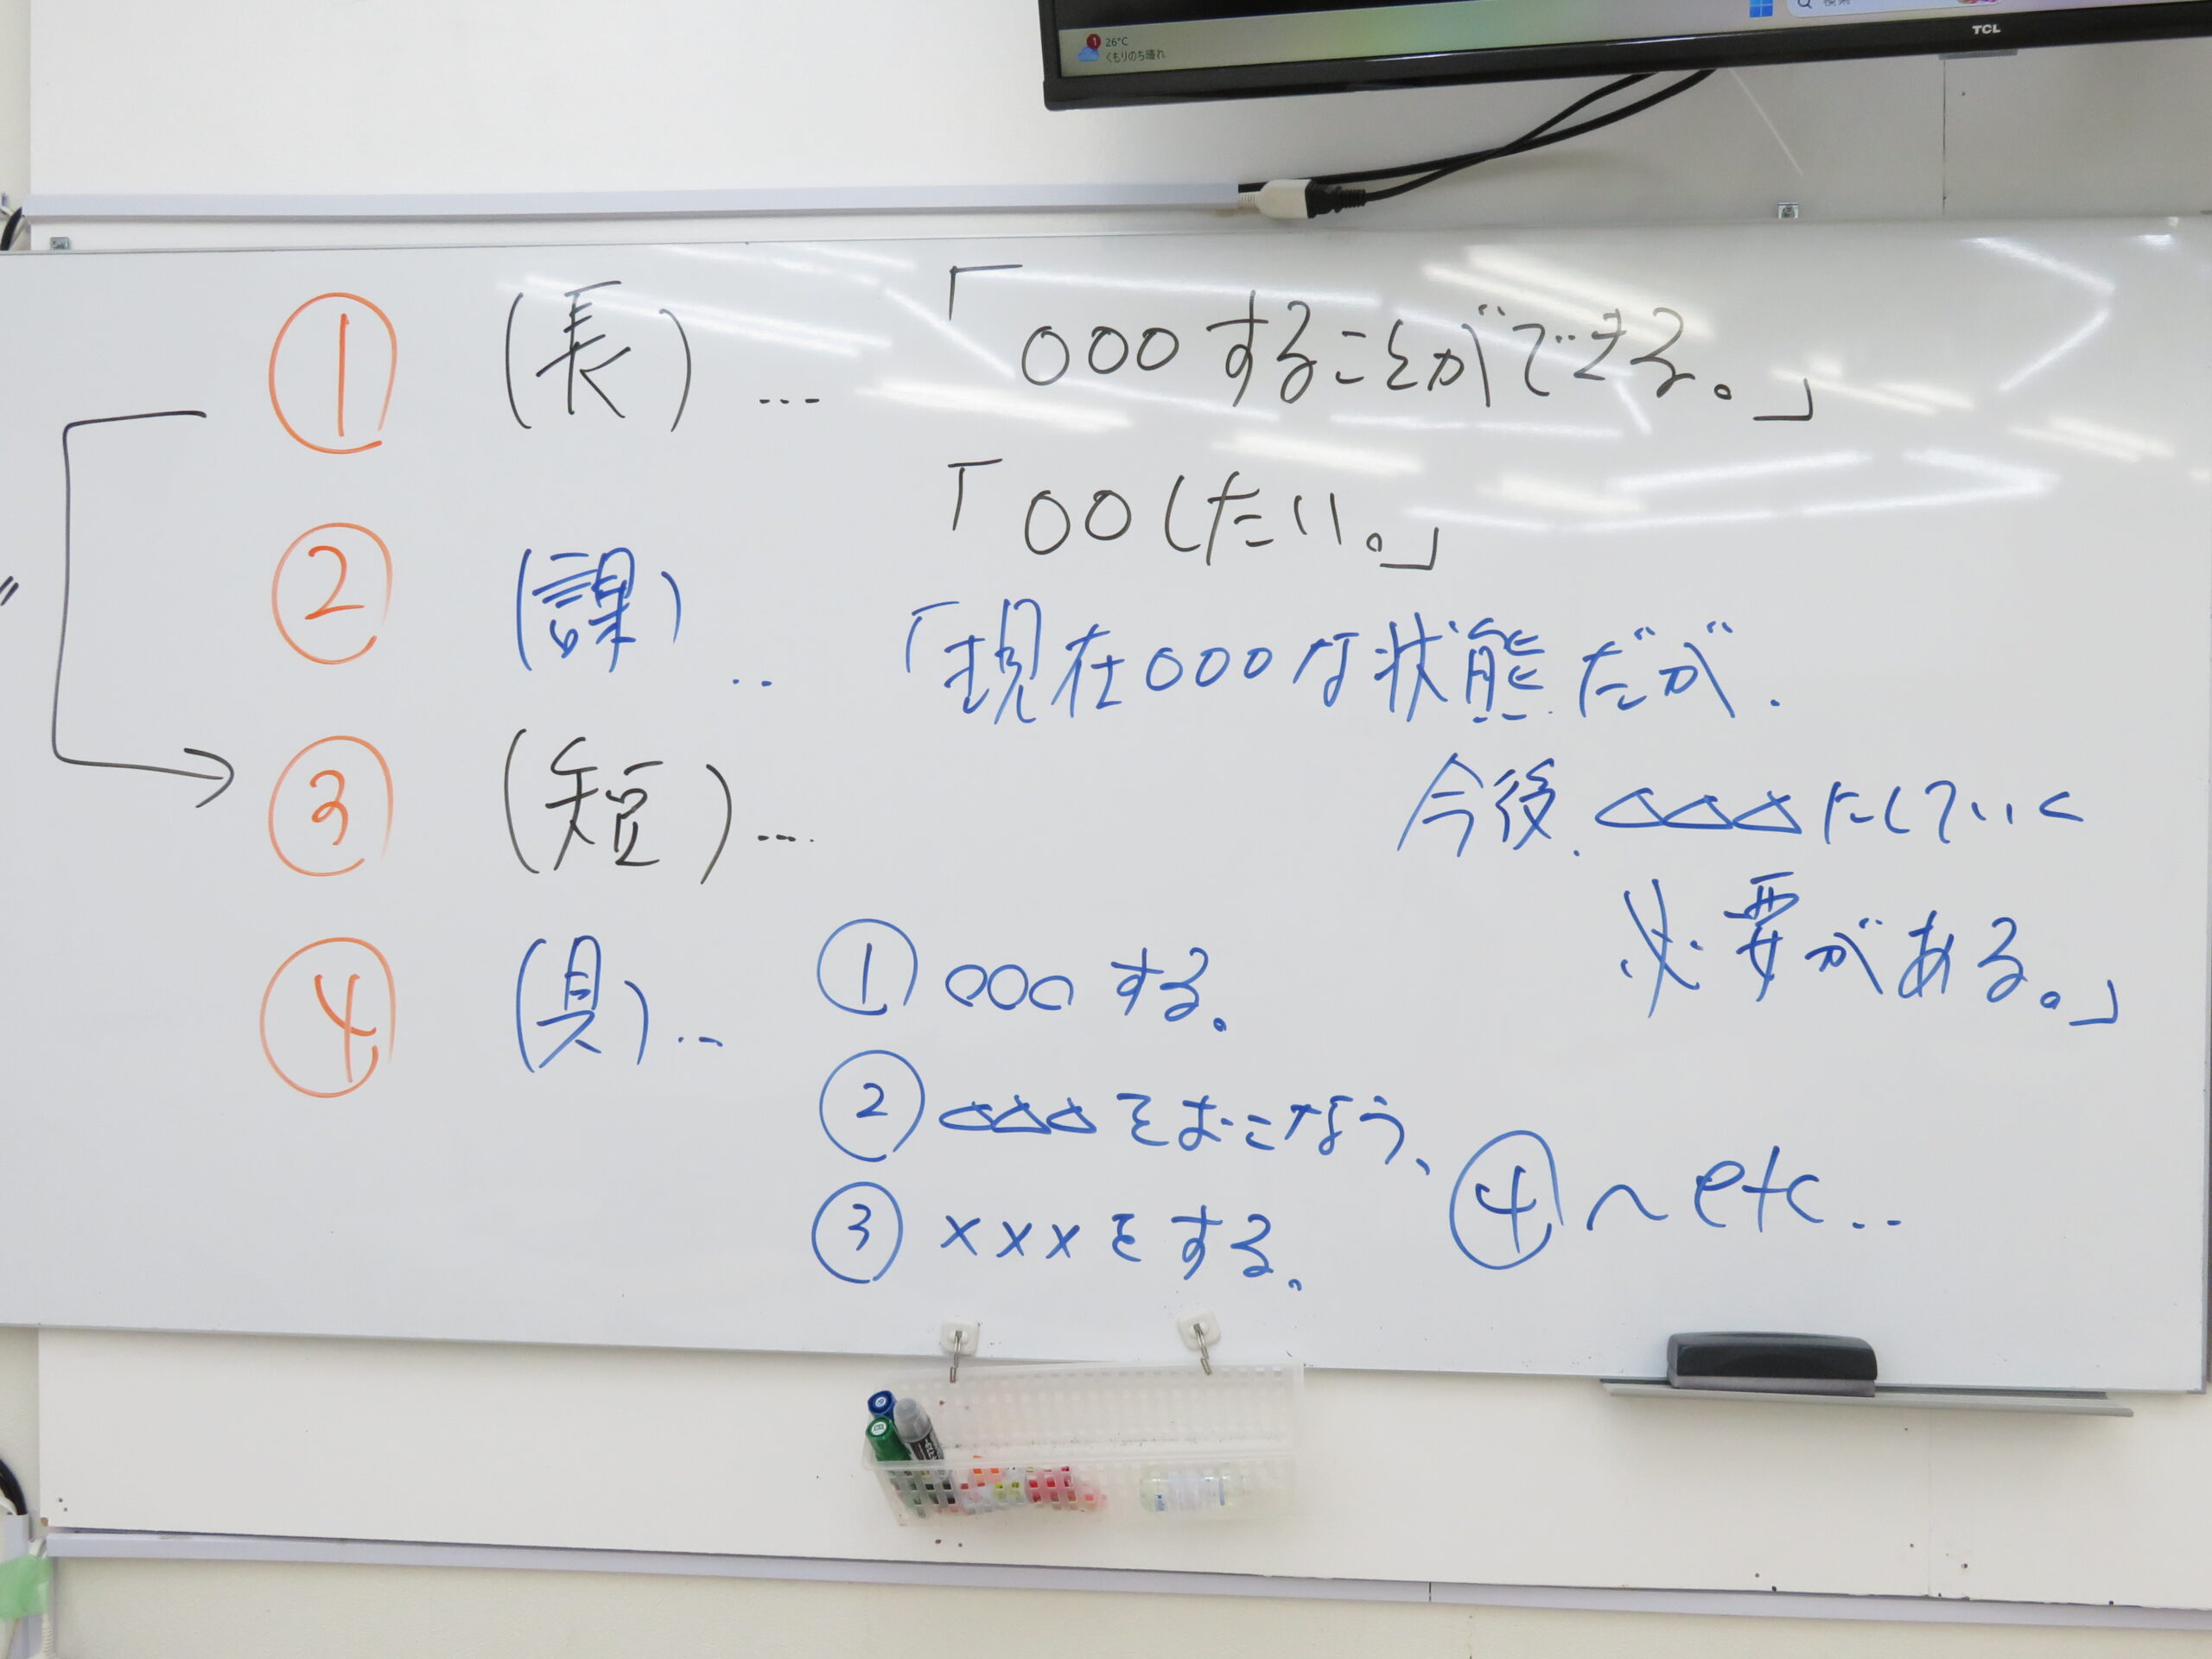 26°C
くもりのち晴れ
検索
TCL
① (長)… 「○○○することができる。」
「○○したい。」
② (課).. 「現在○○○な状態だが、
今後、△△△にしていく
必要がある。」
③ (短)…
④ (具)… ① ○○○する。
② △△△をおこなう、
③ ×××をする。
④ ～etc...